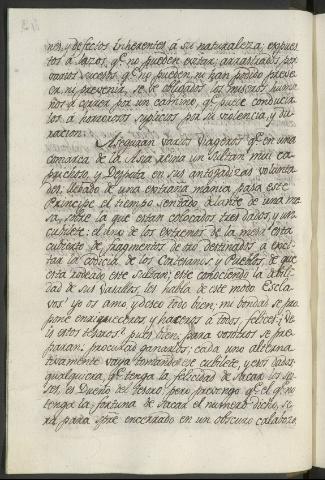 nes, y defectos inherentes á su naturaleza; expues
tos á lazos, qe. no pueden evitar; arrastrados por
varios sucesos, qe. ni pueden, ni han podido preve
er, ni prevenia, se ve obligados los mismos huma
nos á correr por un camino, qe. puede conducir
los á horrorosos suplicios por su violencia, y du
racion.
Aseguran varios Viageros qe. en una
comarca de la Asia reina un Sultan mui ca
prichoso y Despota en sus antojadizas volunta
des; llebado de una extraña mania, pasa este
Principe el tiempo sentado delante de una me
sa, sobre la que estan colocados tres dados, y un
cubilete: el uno de los extremos de la mesa está
cubierto de fragmentos de oro, destinados á exci
tar la codicia de los Cortesanos y Pueblos, de que
está rodeado este Sultan; este conociendo la debili
dad de sus Vasallos, les habla de este modo: Escla
vos! yo os amo, y deseo todo bien; mi bondad se pro
pone enriqueceros y haceros á todos, felices: Ve
is estos tesoros? pues bien, para vosotros se pre
paran: procurad ganarlos; cada uno alterna
tivamente vaya tomando este cubilete, y estos dados:
qualquiera, qe. tenga la felicidad de sacar los seï
ses, es Dueño del tesoro: pero prevengo qe. el qe. no
tenga la fortuna de sacar el numero dicho, se
rá, para spre. encerrado en un obscuro calabozo,